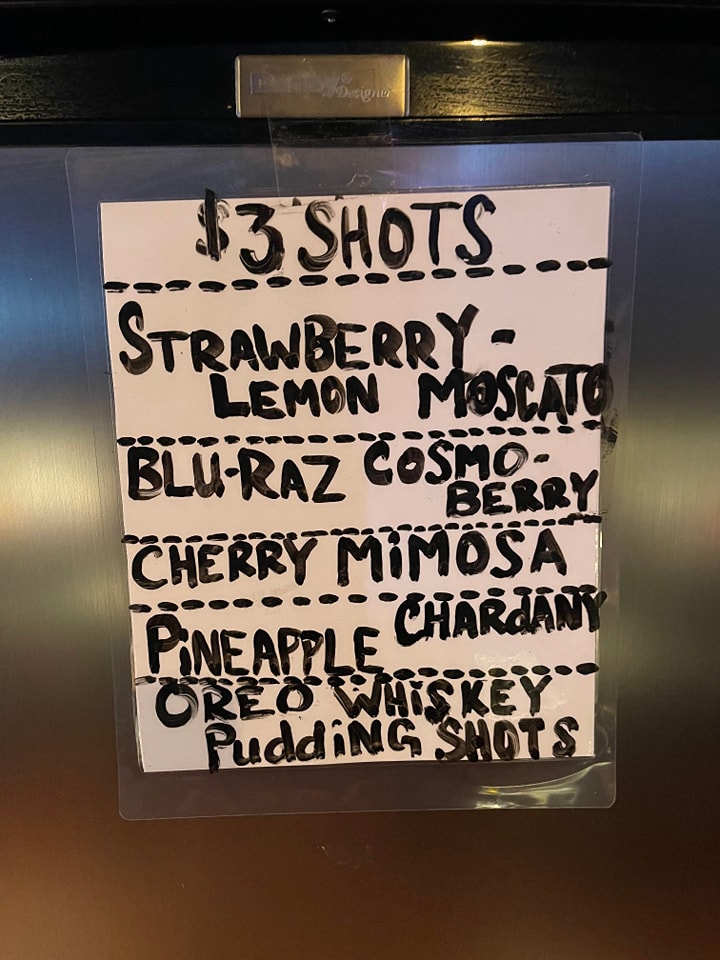 Danby® Designer
$3 SHOTS
STRAWBERRY-
LEMON MOSCATO
BLU-RAZ COSMO-
BERRY
CHERRY MiMOSA
PiNEAPPLE CHARdANY
OREO WHiSKEY
PuddiNG SHOTS